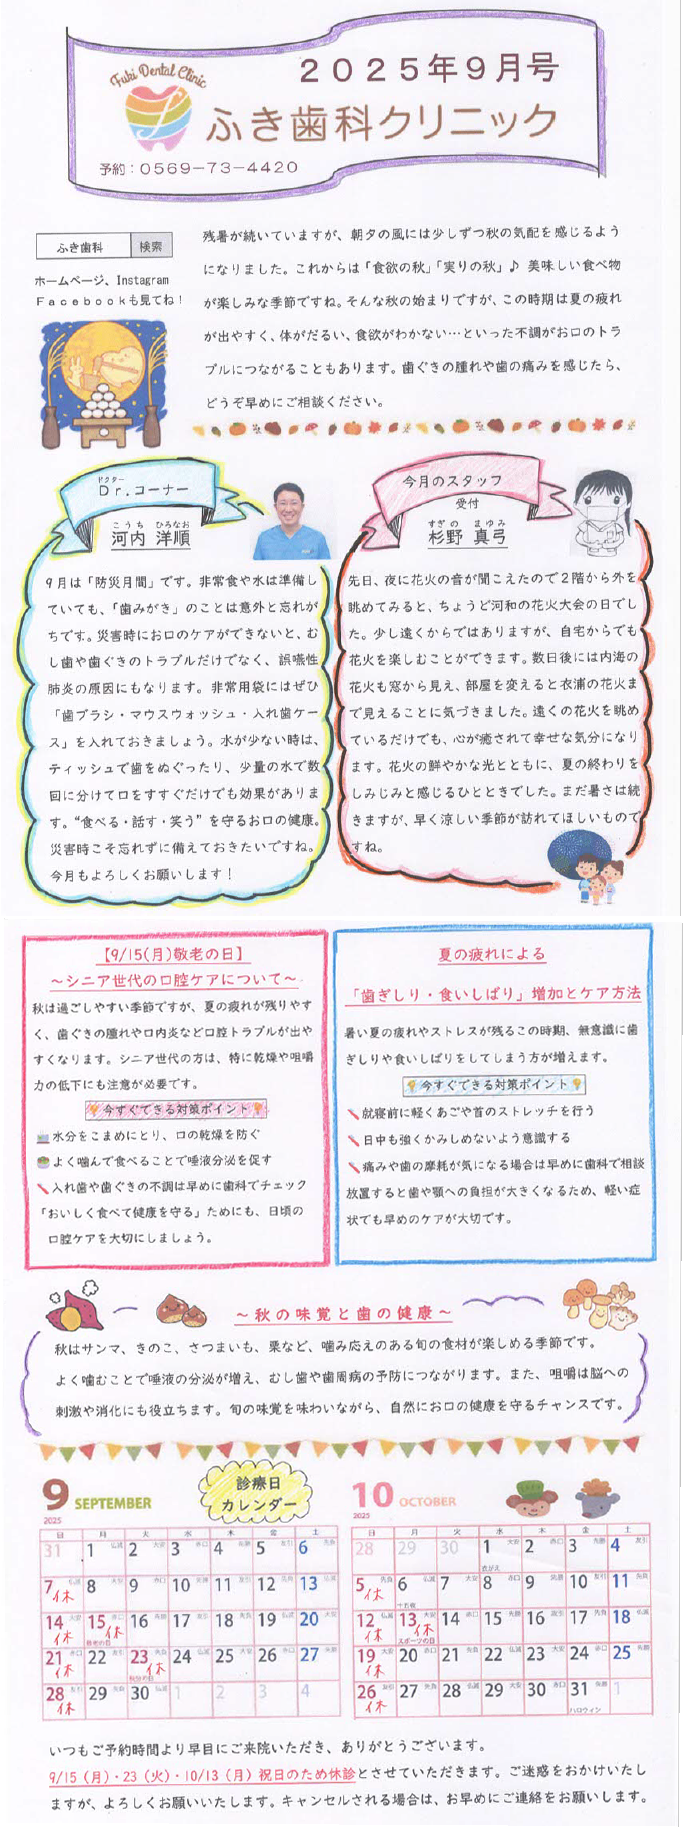 Fuki Dental Clinic
2025年9月号
ふき歯科クリニック
予約：0569-73-4420
ふき歯科 検索
ホームページ、Instagram
Facebookも見てね！
残暑が続いていますが、朝夕の風には少しずつ秋の気配を感じるよう
になりました。これからは「食欲の秋」「実りの秋」♪ 美味しい食べ物
が楽しみな季節ですね。そんな秋の始まりですが、この時期は夏の疲れ
が出やすく、体がだるい、食欲がわかない…といった不調がお口のトラ
ブルにつながることもあります。歯ぐきの腫れや歯の痛みを感じたら、
どうぞ早めにご相談ください。
ドクター
Dr.コーナー
こうち ひろなお
河内 洋順
9月は「防災月間」です。非常食や水は準備し
ていても、「歯みがき」のことは意外と忘れが
ちです。災害時にお口のケアができないと、む
し歯や歯ぐきのトラブルだけでなく、誤嚥性
肺炎の原因にもなります。非常用袋にはぜひ
「歯ブラシ・マウスウォッシュ・入れ歯ケー
ス」を入れておきましょう。水が少ない時は、
ティッシュで歯をぬぐったり、少量の水で数
回に分けて口をすすぐだけでも効果がありま
す。“食べる・話す・笑う”を守るお口の健康。
災害時こそ忘れずに備えておきたいですね。
今月もよろしくお願いします！
今月のスタッフ
受付
すぎの まゆみ
杉野 真弓
先日、夜に花火の音が聞こえたので2階から外を
眺めてみると、ちょうど河和の花火大会の日でし
た。少し遠くからではありますが、自宅からでも
花火を楽しむことができます。数日後には内海の
花火も窓から見え、部屋を変えると衣浦の花火ま
で見えることに気づきました。遠くの花火を眺め
ているだけでも、心が癒されて幸せな気分になり
ます。花火の鮮やかな光とともに、夏の終わりを
しみじみと感じるひとときでした。まだ暑さは続
きますが、早く涼しい季節が訪れてほしいもので
すね。
【9/15(月)敬老の日】
～シニア世代の口腔ケアについて～
秋は過ごしやすい季節ですが、夏の疲れが残りやす
く、歯ぐきの腫れや口内炎など口腔トラブルが出や
すくなります。シニア世代の方は、特に乾燥や咀嚼
力の低下にも注意が必要です。
今すぐできる対策ポイント
水分をこまめにとり、口の乾燥を防ぐ
よく噛んで食べることで唾液分泌を促す
入れ歯や歯ぐきの不調は早めに歯科でチェック
「おいしく食べて健康を守る」ためにも、日頃の
口腔ケアを大切にしましょう。
夏の疲れによる
「歯ぎしり・食いしばり」増加とケア方法
暑い夏の疲れやストレスが残るこの時期、無意識に歯
ぎしりや食いしばりをしてしまう方が増えます。
今すぐできる対策ポイント
就寝前に軽くあごや首のストレッチを行う
日中も強くかみしめないよう意識する
痛みや歯の摩耗が気になる場合は早めに歯科で相談
放置すると歯や顎への負担が大きくなるため、軽い症
状でも早めのケアが大切です。
～秋の味覚と歯の健康～
秋はサンマ、きのこ、さつまいも、栗など、噛み応えのある旬の食材が楽しめる季節です。
よく噛むことで唾液の分泌が増え、むし歯や歯周病の予防につながります。また、咀嚼は脳への
刺激や消化にも役立ちます。旬の味覚を味わいながら、自然にお口の健康を守るチャンスです。
診療日
カレンダー
9 SEPTEMBER
2025
日 月 火 水 木 金 土
31 1 2 3 4 5 6
7 休 8 9 10 11 12 13
14 休 15 休 16 17 18 19 20
敬老の日
21 休 22 23 休 24 25 26 27
秋分の日
28 休 29 30 1 2 3 4
10 OCTOBER
2025
日 月 火 水 木 金 土
28 29 30 1 2 3 4
衣がえ
5 休 6 7 8 9 10 11
十五夜
12 休 13 休 14 15 16 17 18
スポーツの日
19 休 20 21 22 23 24 25
26 休 27 28 29 30 31 1
ハロウィン
いつもご予約時間より早目にご来院いただき、ありがとうございます。
9/15（月）・23（火）・10/13（月）祝日のため休診とさせていただきます。ご迷惑をおかけいたし
ますが、よろしくお願いいたします。キャンセルされる場合は、お早めにご連絡をお願いします。